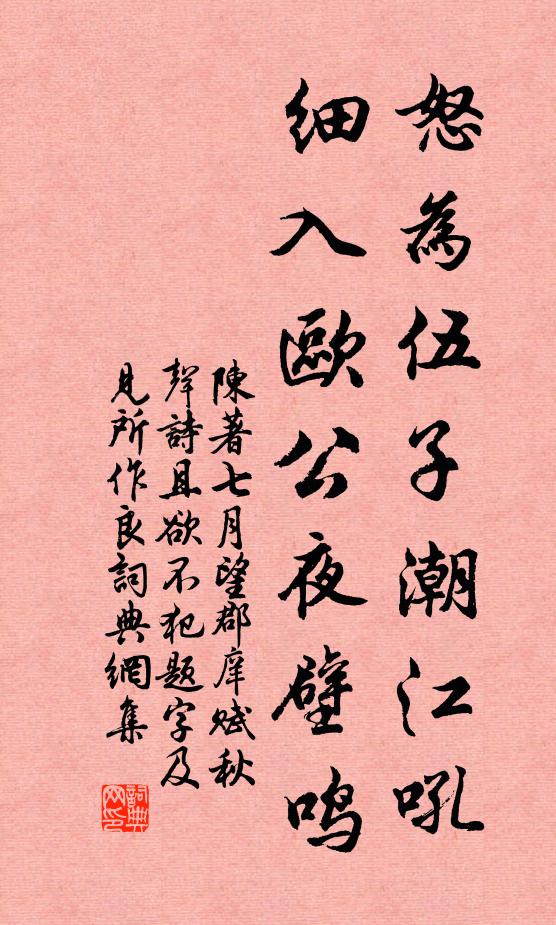 怒為伍子潮江吼
細入歐公夜壁鳴
陳著七月望郡庠赋秋
聲詩且欲不犯題字及
見所作良詞典網集
詞典网印